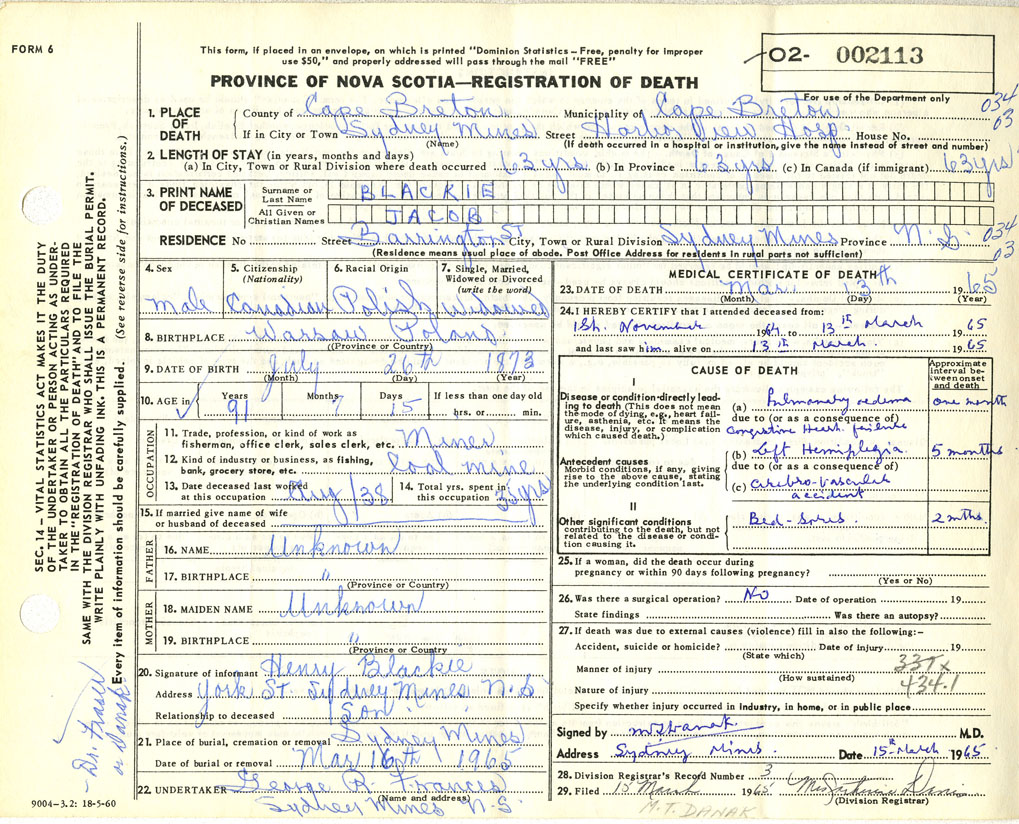 FORM 6
This form, if placed in an envelope, on which is printed "Dominion Statistics – Free, penalty for improper
use $50," and properly addressed will pass through the mail "FREE"
PROVINCE OF NOVA SCOTIA—REGISTRATION OF DEATH
02- 002113
For use of the Department only
034
03
1. PLACE OF DEATH
County of Cape Breton Municipality of Cape Breton
If in City or Town Sydney Mines Street Harbor View Hosp. House No.
(Name) (If death occurred in a hospital or institution, give the name instead of street and number)
2. LENGTH OF STAY (in years, months and days)
(a) In City, Town or Rural Division where death occurred 63 yrs (b) In Province 63 yrs (c) In Canada (if immigrant) 63 yrs
3. PRINT NAME OF DECEASED
Surname or Last Name BLACKIE
All Given or Christian Names JACOB
RESIDENCE No Street Barrington St City, Town or Rural Division Sydney Mines Province N.S.
034
03
(Residence means usual place of abode. Post Office Address for residents in rural parts not sufficient)
4. Sex Male
5. Citizenship (Nationality) Canadian
6. Racial Origin Polish
7. Single, Married, Widowed or Divorced (write the word) Widowed
8. BIRTHPLACE Warsaw Poland
(Province or Country)
9. DATE OF BIRTH July 26th 1873
(Month) (Day) (Year)
10. AGE in Years 91 Months 7 Days 15 If less than one day old hrs. or min.
OCCUPATION
11. Trade, profession, or kind of work as fisherman, office clerk, sales clerk, etc. Miner
12. Kind of industry or business, as fishing, bank, grocery store, etc. Coal mine
13. Date deceased last worked at this occupation Aug/38
14. Total yrs. spent in this occupation 35 yrs
15. If married give name of wife or husband of deceased
FATHER
16. NAME Unknown
17. BIRTHPLACE "
(Province or Country)
MOTHER
18. MAIDEN NAME Unknown
19. BIRTHPLACE "
(Province or Country)
20. Signature of informant Henry Blackie
Address York St. Sydney Mines N.S
Relationship to deceased Son
21. Place of burial, cremation or removal Sydney Mines
Date of burial or removal Mar 16th 1965
22. UNDERTAKER George R. Frances
(Name and address)
Sydney Mines N.S.
9004—3.2: 18-5-60
MEDICAL CERTIFICATE OF DEATH
23. DATE OF DEATH Mar. 13th 1965
(Month) (Day) (Year)
24. I HEREBY CERTIFY that I attended deceased from:
1St. November 1964 to 13th March 1965
and last saw him alive on 13th March. 1965
CAUSE OF DEATH
Approximate interval between onset and death
I
Disease or condition directly leading to death (This does not mean the mode of dying, e.g., heart failure, asthenia, etc. It means the disease, injury, or complication which caused death.)
(a) Pulmonary oedema one month
due to (or as a consequence of)
Congestive Heart failure
Antecedent causes
Morbid conditions, if any, giving rise to the above cause, stating the underlying condition last.
(b) Left Hemiplegia 5 months
due to (or as a consequence of)
(c) Cerebro-vascular
accident
II
Other significant conditions
contributing to the death, but not related to the disease or condition causing it.
Bed-sores. 2 mths.
25. If a woman, did the death occur during
pregnancy or within 90 days following pregnancy?
(Yes or No)
26. Was there a surgical operation? No Date of operation 19
State findings Was there an autopsy?
27. If death was due to external causes (violence) fill in also the following:–
Accident, suicide or homicide? Date of injury 19
(State which)
Manner of injury 331x
(How sustained)
434.1
Nature of injury
Specify whether injury occurred in industry, in home, or in public place
Signed by M T Danak. M.D.
Address Sydney Mines. Date 15th March 1965
28. Division Registrar's Record Number 3
29. Filed 15 March 1965
(Division Registrar)
M.T. DANAK
SEC. 14 – VITAL STATISTICS ACT MAKES IT THE DUTY
OF THE UNDERTAKER OR PERSON ACTING AS UNDER-
TAKER TO OBTAIN ALL THE PARTICULARS REQUIRED
IN THE "REGISTRATION OF DEATH" AND TO FILE THE
SAME WITH THE DIVISION REGISTRAR WHO SHALL ISSUE THE BURIAL PERMIT.
WRITE PLAINLY WITH UNFADING INK. THIS IS A PERMANENT RECORD.
Every item of information should be carefully supplied. (See reverse side for instructions.)
Dr. Fraser
or Danak